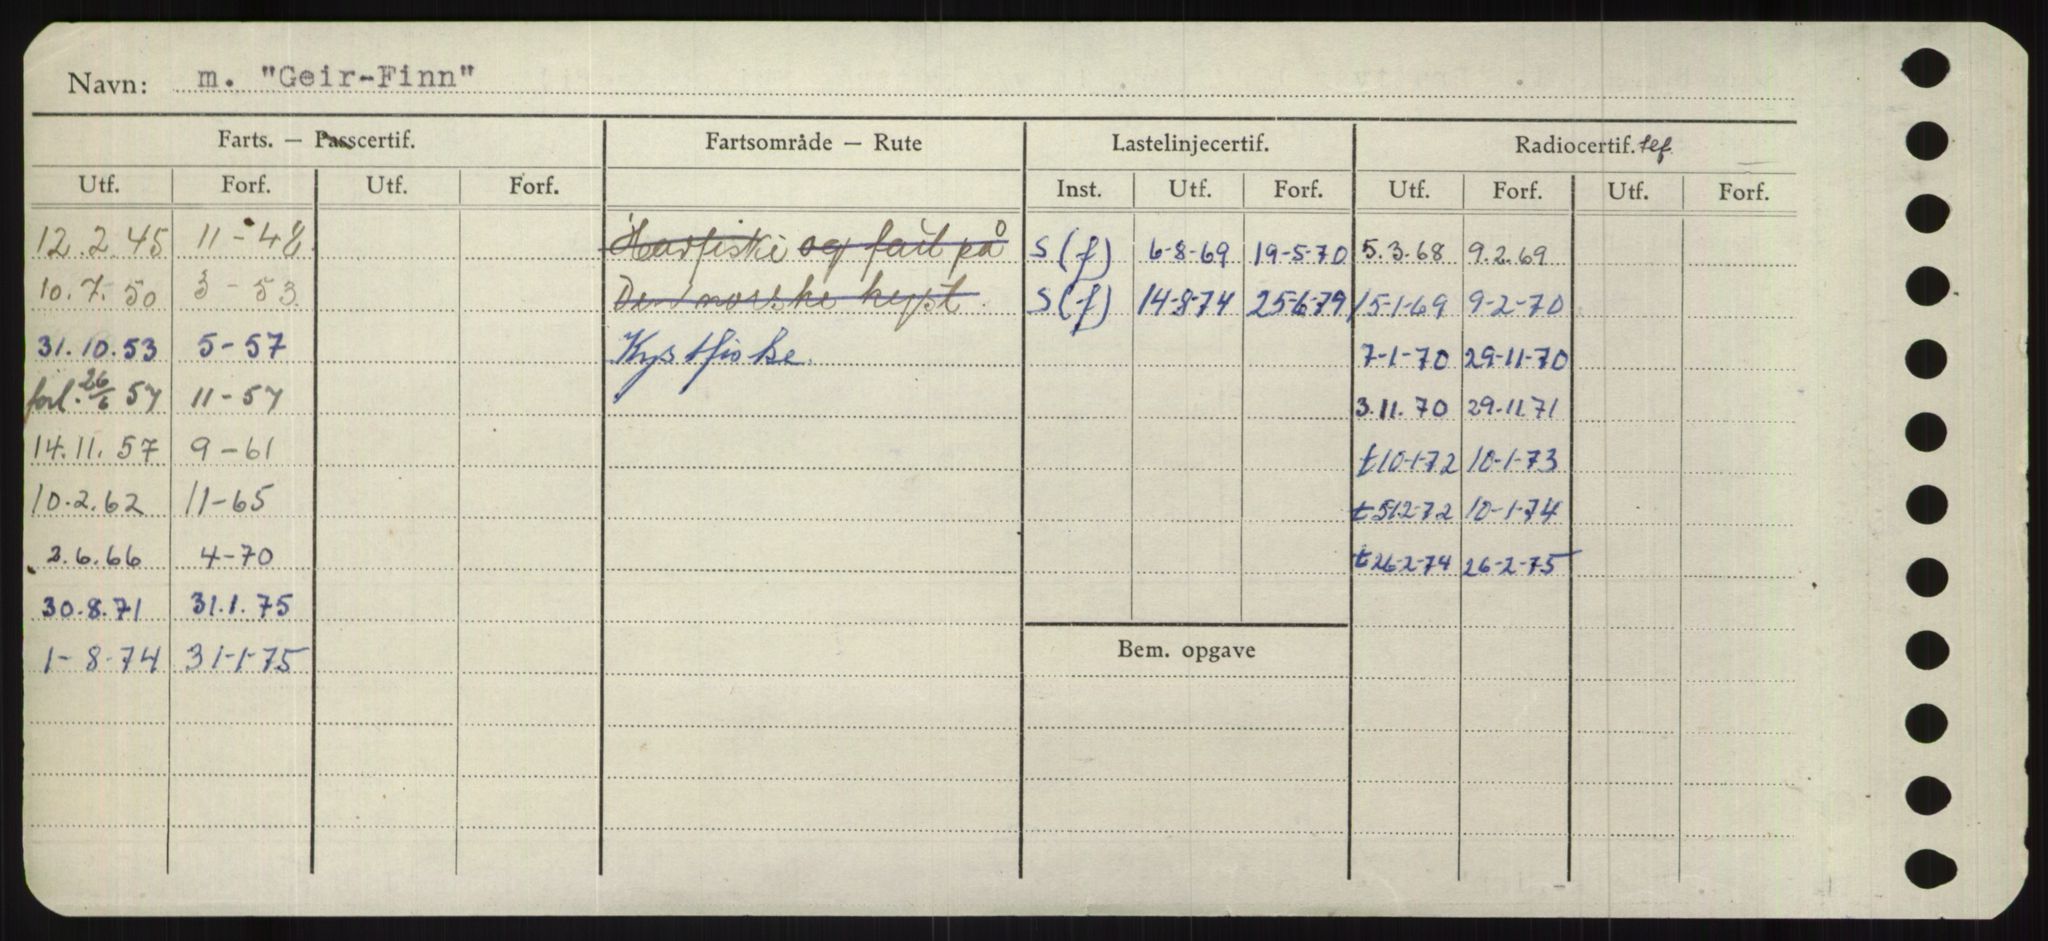 Navn: m. "Geir-Finn"
Farts. — Passcertif. Fartsområde — Rute Lastelinjecertif. Radiocertif. tef.
Utf. Forf. Utf. Forf. Inst. Utf. Forf. Utf. Forf. Utf. Forf.
12.2.45 11-48 Havfiske og fart på S (f) 6-8-69 19-5-70 5.3.68 9.2.69
10.7.50 3-53 Den norske kyst. S (f) 14-8-74 25-6-79 15-1-69 9-2-70
31.10.53 5-57 Kystfiske. 7-1-70 29-11-70
forl. 26/6 57 11-57 3.11.70 29.11.71
14.11.57 9-61 t 10-1-72 10-1-73
10.2.62 11-65 t 5-12-72 10-1-74
2.6.66 4-70 t 26-2-74 26-2-75
30.8.71 31.1.75
1-8-74 31-1-75 Bem. opgave